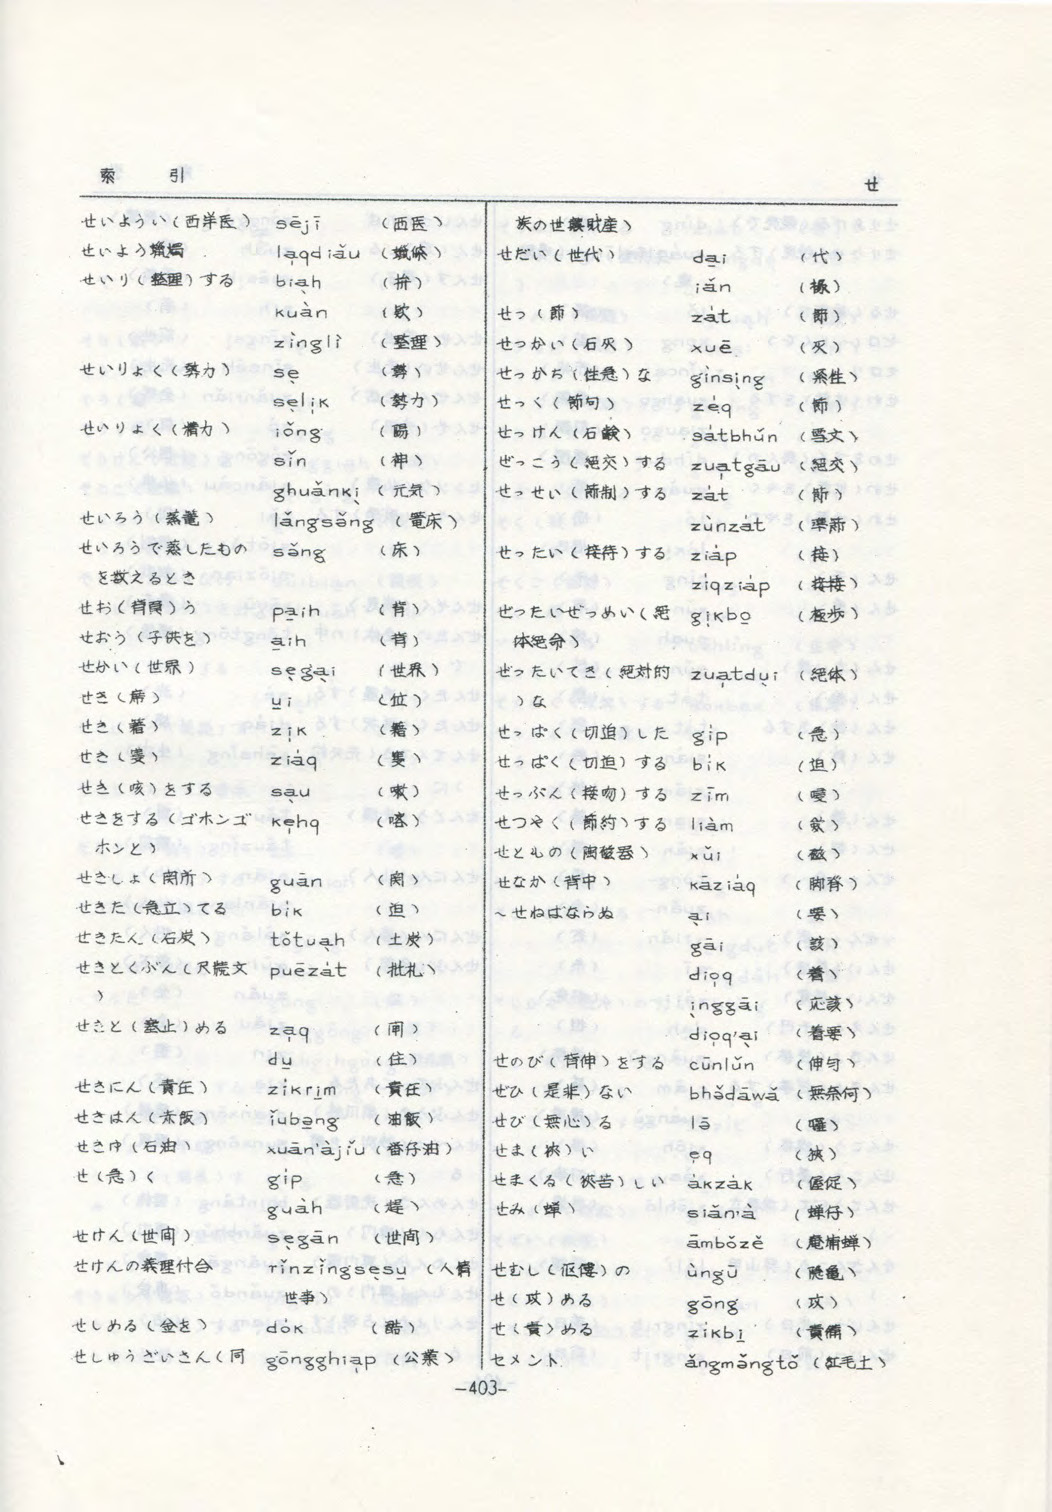 索 引
せ
せいようい(西洋医) sējī (西医)
せいよう蠟燭 la̍qdiǎu (蠟條)
せいり(整理)する biạh (拚)
kuàn (欵)
zìnglì (整理)
せいりょく(勢力) sẹ (勢)
sẹlịk (勢力)
せいりょく(精力) iǒng (陽)
sǐn (神)
ghuǎnkị (元気)
せいろう(蒸籠) lǎngsěng (篭床)
せいろうで蒸したもの sǎng (床)
を数えるとき
せお(背負)う pa̱ih (背)
せおう(子供を) a̱ih (背)
せかい(世界) sẹga̱i (世界)
せき(席) u̱i (位)
せき(籍) zịk (籍)
せき(隻) ziáq (隻)
せき(咳)をする sạu (嗽)
せきをする(ゴホンゴ kẹhq (喀)
ホンと)
せきしょ(関所) guān (関)
せきた(急立)てる bík (迫)
せきたん(石炭) tòtuạh (土炭)
せきとくぶん(尺牘文 puēzát (批札)
)
せきと(塞止)める za̍q (閘)
du̱ (住)
せきにん(責任) zíkri̱m (責任)
せきはん(赤飯) ǐuba̱ng (油飯)
せきゆ(石油) xuān'àjǐu (番仔油)
せ(急)く gíp (急)
guàh (趕)
せけん(世間) sẹgān (世間)
せけんの義理付合 rǐnzǐngsẹsu̱ (人情
世事)
せしめる(金を) dók (酷)
せしゅうざいさん(同 gōngghia̍p (公業)
族の世襲財産)
せだい(世代) da̱i (代)
iǎn (櫞)
せつ(節) zát (節)
せっかい(石灰) xuē (灰)
せっかち(性急)な gìnsịng (緊性)
せっく(節句) zéq (節)
せっけん(石鹸) sátbhǔn (雪文)
ぜっこう(絶交)する zua̍tgāu (絶交)
せっせい(節制)する zát (節)
zùnzát (準節)
せったい(接待)する ziáp (接)
zíqziáp (接接)
ぜったいぜつめい(絶 gi̍kbo̱ (極歩)
体絶命)
ぜったいてき(絶対的 zua̍tdụi (絶体)
)な
せっぱく(切迫)した gíp (急)
せっぱく(切迫)する bík (迫)
せっぷん(接吻)する zīm (唚)
せつやく(節約)する liàm (歛)
せともの(陶磁器) xǔi (磁)
せなか(背中) kāziáq (脚脊)
~せねばならぬ ại (要)
gāi (該)
dio̍q (着)
ịnggāi (応該)
dio̍q'ại (着要)
せのび(背伸)をする cūnlǔn (伸勻)
ぜひ(是非)ない bhǒdāwǎ (無奈何)
せび(無心)る lō (囉)
せま(狭)い e̍q (狭)
せまくる(狭苦)しい ákzák (偓促)
せみ(蝉) siǎn'à (蝉仔)
āmbǒzě (庵埔蝉)
せむし(傴僂)の ùngū (隱亀)
せ(攻)める gōng (攻)
せ(責)める zíkbi̱ (責備)
セメント ǎngmǎngtǒ (紅毛土)
-403-